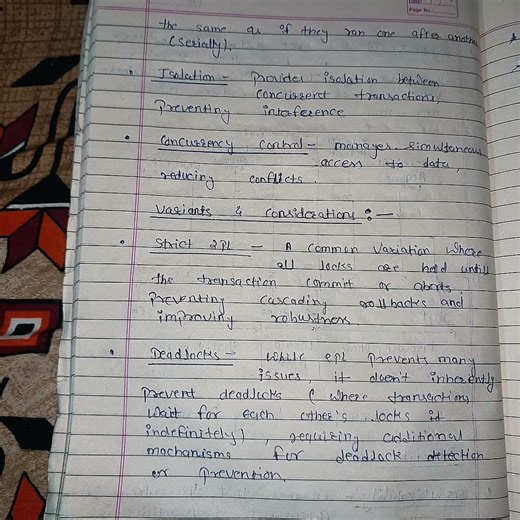 Page No.
the same as if they ran one after another
(serially).
• Isolation - Provides isolation between
concurrent transactions,
preventing interference
• Concurrency control - manages simultaneous
access to data,
reducing conflicts.
Variants & considerations :-
• Strict 2PL - A common variation where
all locks are held until
the transaction commit or aborts,
preventing cascading rollbacks and
improving robustness.
• Deadlocks - While 2pl prevents many
issues it doesn't inherently
prevent deadlocks ( where transactions
wait for each other's locks
indefinitely) , requiring additional
mechanisms for deadlock detection
or prevention.